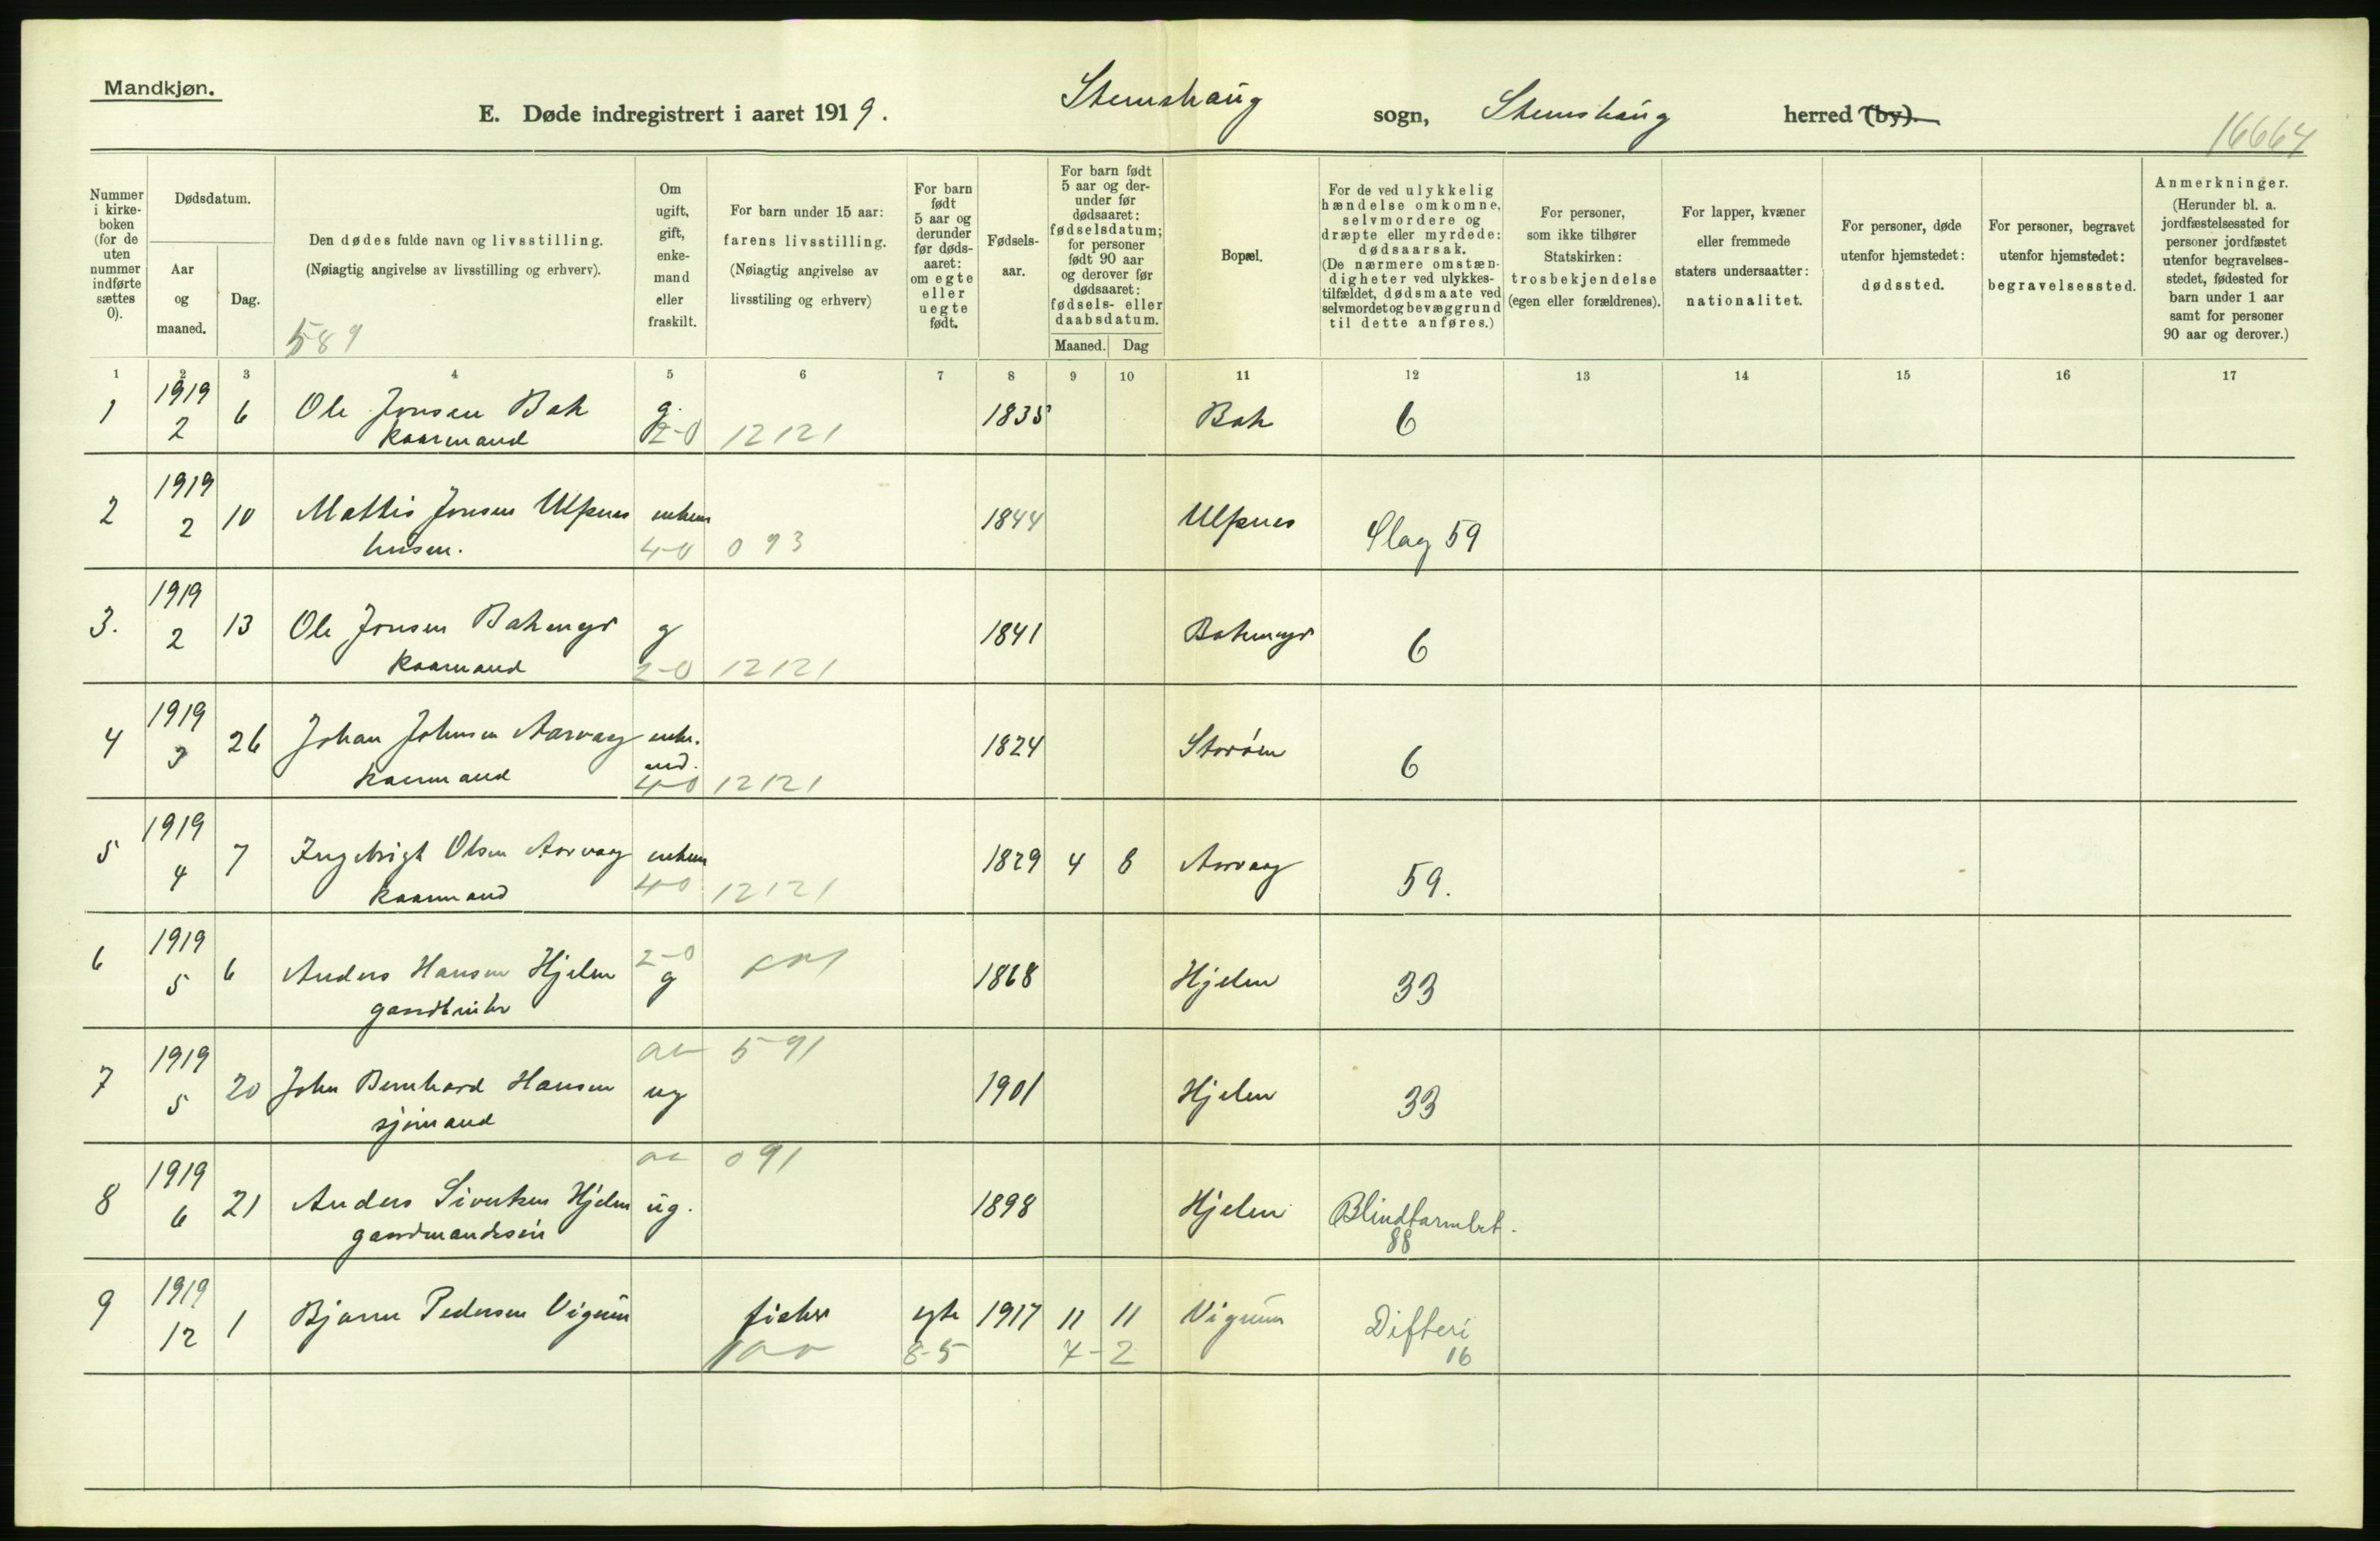 Mandkjøn.
E. Døde indregistrert i aaret 1919. Stemshaug sogn, Stemshaug herred (by).
16664
Nummer i kirkeboken (for de uten nummer indførte sættes 0).
Dødsdatum.
Aar og maaned.
Dag.
Den dødes fulde navn og livsstilling.
(Nøiagtig angivelse av livsstilling og erhverv).
589
Om ugift, gift, enkemand eller fraskilt.
For barn under 15 aar:
farens livsstilling.
(Nøiagtig angivelse av livsstiling og erhverv)
For barn født 5 aar og derunder før dødsaaret: om egte eller uegte født.
Fødselsaar.
For barn født 5 aar og derunder før dødsaaret: fødselsdatum; for personer født 90 aar og derover før dødsaaret: fødsels- eller daabsdatum.
Maaned. Dag
Bopæl.
For de ved ulykkelig hændelse omkomne, selvmordere og dræpte eller myrdede: dødsaarsak.
(De nærmere omstændigheter ved ulykkestilfældet, dødsmaate ved selvmordet og bevæggrund til dette anføres.)
For personer, som ikke tilhører Statskirken: trosbekjendelse (egen eller forældrenes).
For lapper, kvæner eller fremmede staters undersaatter: nationalitet.
For personer, døde utenfor hjemstedet: dødssted.
For personer, begravet utenfor hjemstedet: begravelsessted.
Anmerkninger.
(Herunder bl. a. jordfæstelsessted for personer jordfæstet utenfor begravelsesstedet, fødested for barn under 1 aar samt for personer 90 aar og derover.)
1 2 3 4 5 6 7 8 9 10 11 12 13 14 15 16 17
1 1919 2 6 Ole Jonsen Bak g. 1835 Bak 6
kaarmand 2-0 12121
2 1919 2 10 Mathis Jonsen Ulfsnes enkem 1844 Ulfsnes Slag 59
husm. 4-0 093
3. 1919 2 13 Ole Jonsen Bakmyr g 1841 Bakmyr 6
kaarmand 2-0 12121
4 1919 3 26 Johan Johnsen Aarvaag enke. md. 1824 Storøen 6
kaarmand 4-0 12121
5 1919 4 7 Ingebrigt Olsen Aarvaag enkem 1829 4 8 Aarvaag 59.
kaarmand 4-0 12121
6 1919 5 6 Anders Hansen Hjelm g 1868 Hjelm 33
gaardbruker 2-0
7 1919 5 20 John Bernhard Hansen ug 1901 Hjelm 33
sjømand 591
8 1919 6 21 Anders Sivertsen Hjelm ug. 1898 Hjelm Blindtarmbet. 88
gaardmandssøn 091
9 1919 12 1 Bjarne Pedersen Vigum fisker egte 1917 11 11 Vigum Difteri 16
100 8-5 7-2